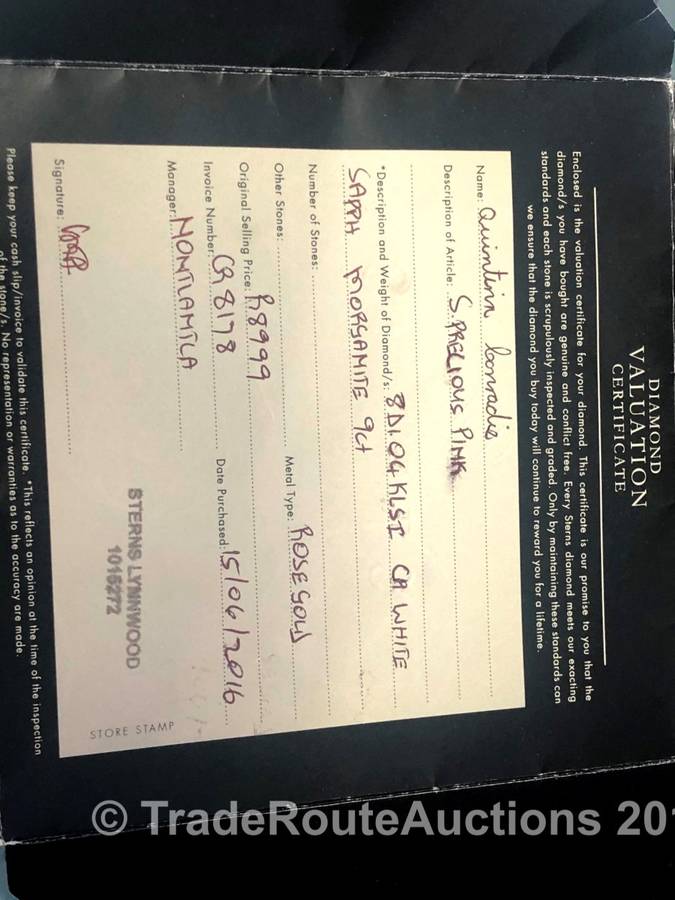 DIAMOND
VALUATION
CERTIFICATE
Enclosed is the valuation certificate for your diamond. This certificate is our promise to you that the
diamond/s you have bought are genuine and conflict free. Every Sterns diamond meets our exacting
standards and each stone is scrupulously inspected and graded. Only by maintaining these standards can
we ensure that the diamond you buy today will continue to reward you for a lifetime.
Name: Quintin Conradie
Description of Article: S.PRECIOUS PINK
*Description and Weight of Diamond/s: 8D1.04 KLSI CR WHITE
SAPPH MORGAMITE 9ct
Number of Stones:
Other Stones: Metal Type: ROSE GOLD
Original Selling Price: R8999
Invoice Number: CR 8178 Date Purchased: 15/06/2016
Manager:
Signature:
STERNS LYNNWOOD
1015272
STORE STAMP
Please keep your cash slip/invoice to validate this certificate. *This reflects an opinion at the time of the inspection
of the stone/s. No representation or warranties as to the accuracy are made.
© TradeRouteAuctions 201